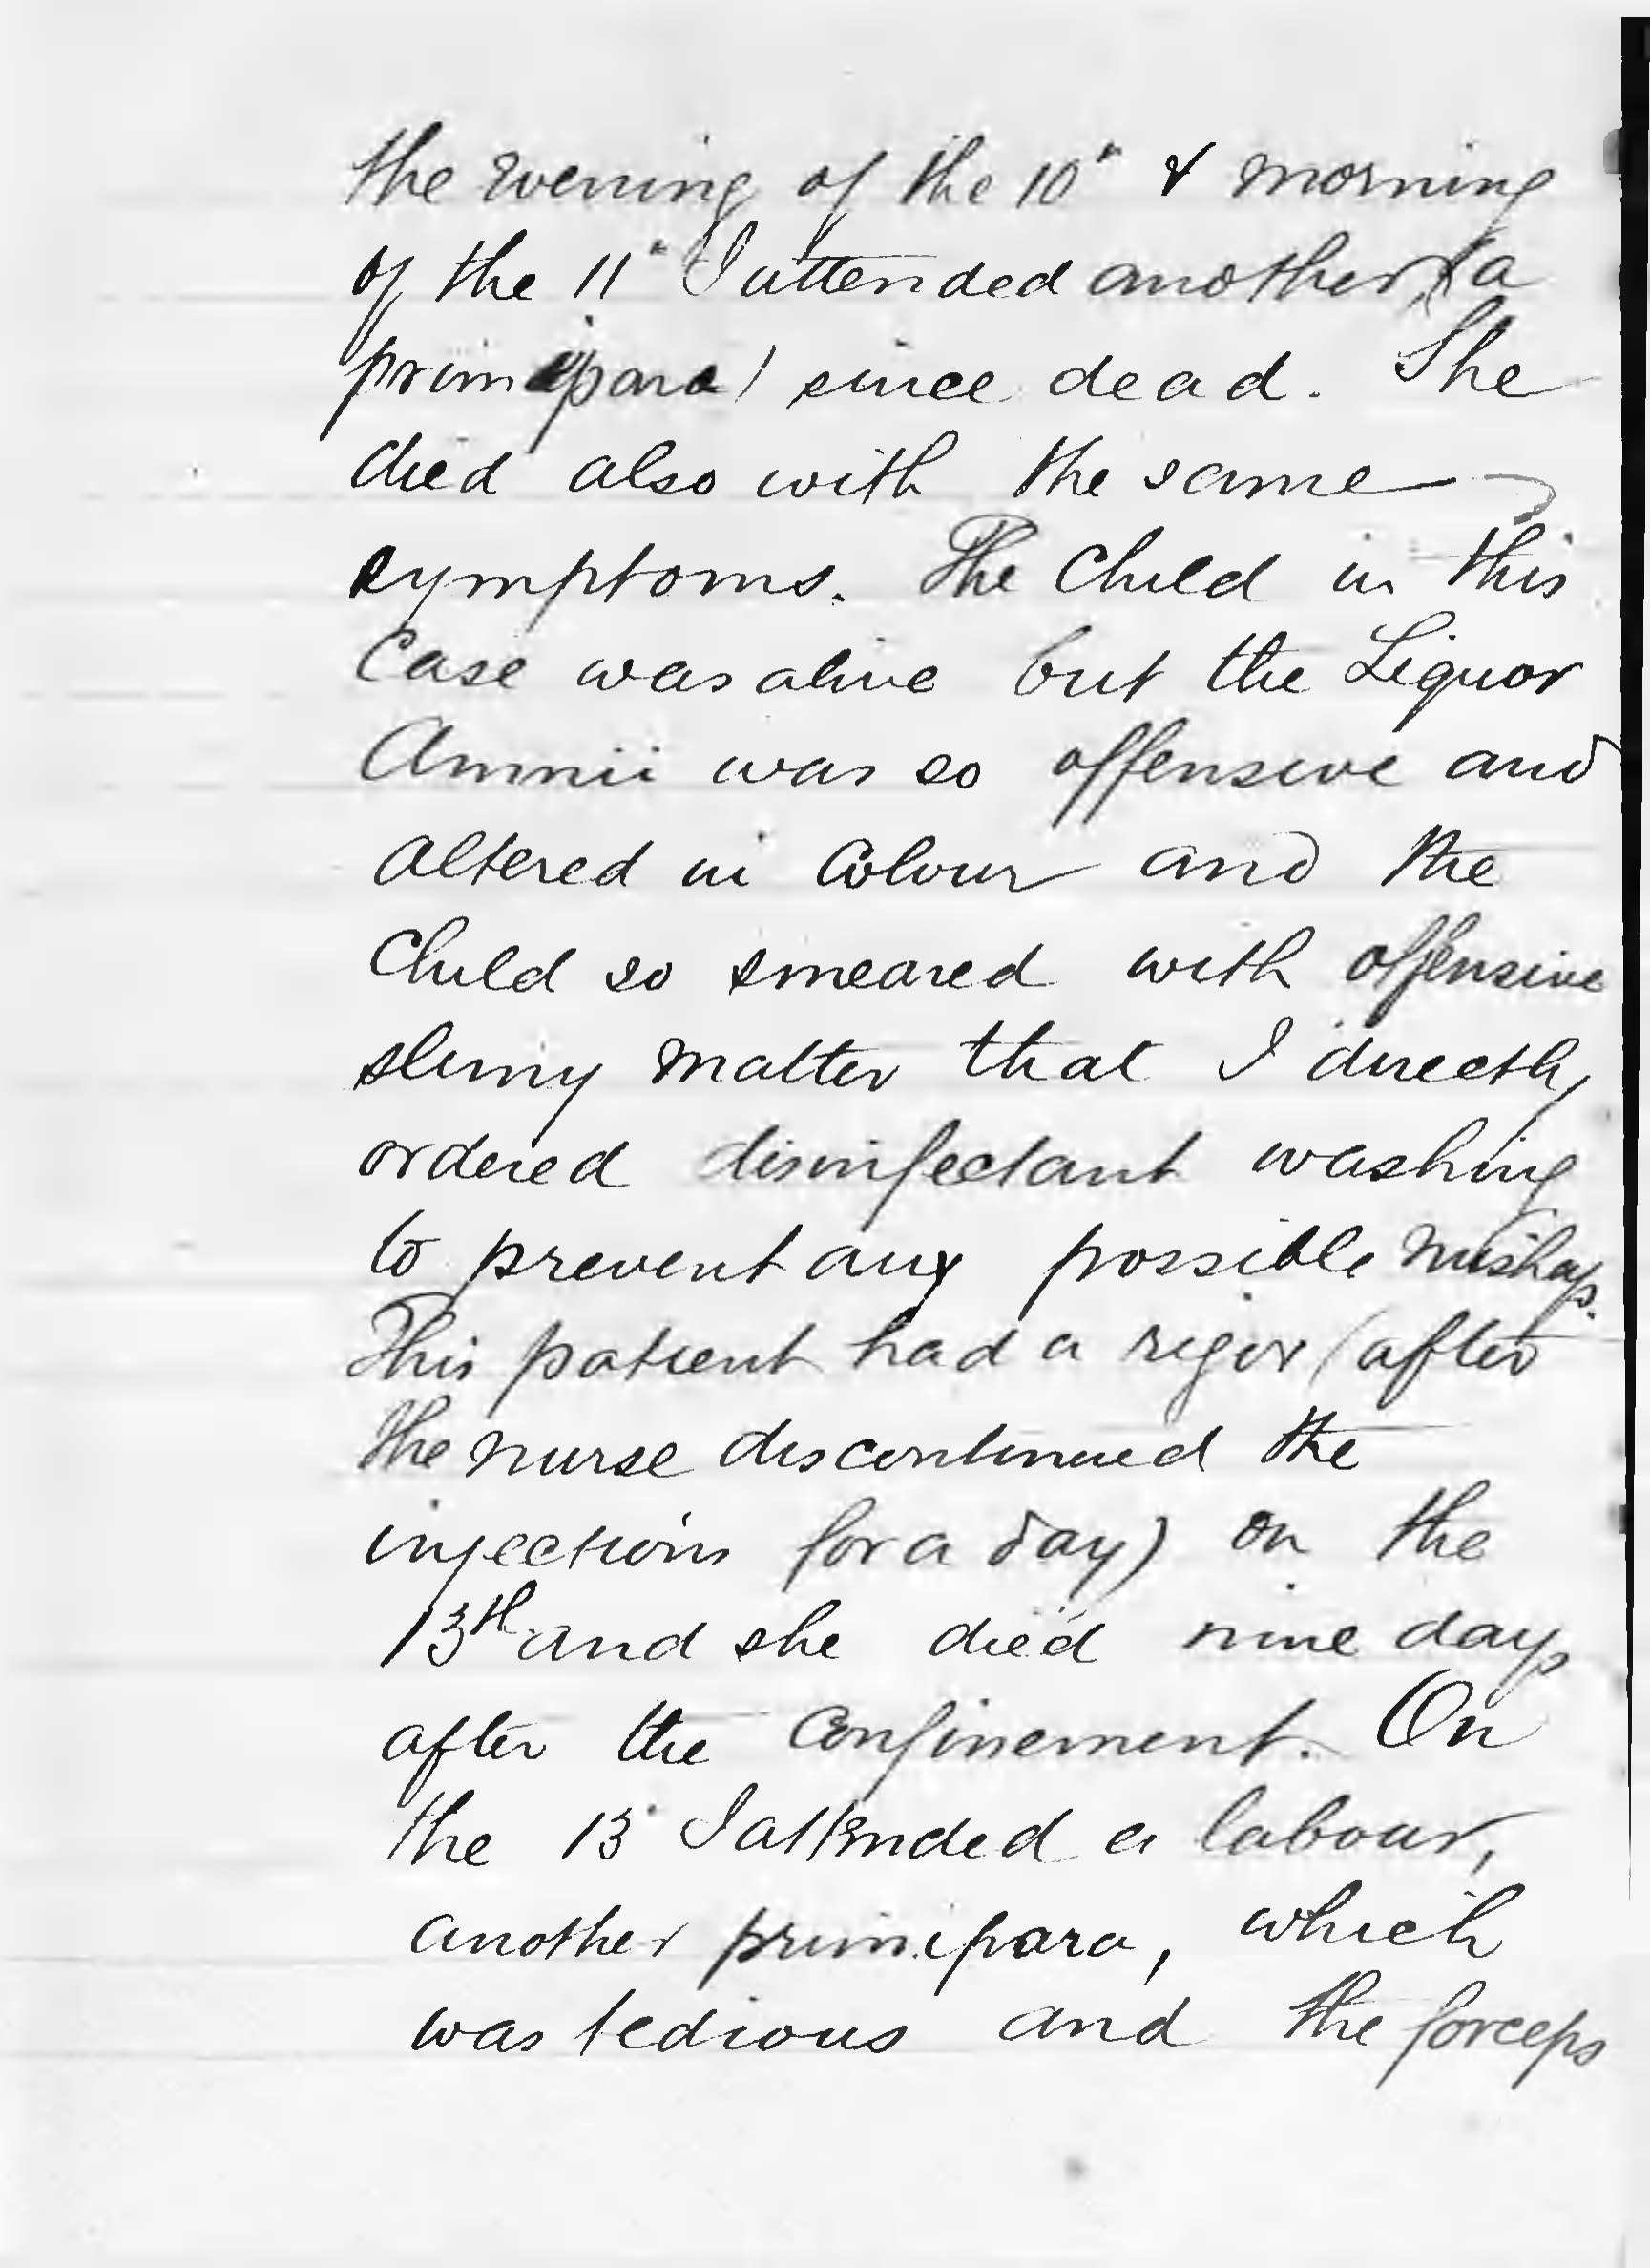 the evening of the 10" & morning
of the 11" I attended another, (a
primipara) since dead. She
died also with the same
symptoms. The Child in this
Case was alive but the Liquor
Amnii was so offensive and
altered in Colour and the
Child so smeared with offensive
slimy matter that I directly
ordered disinfectant washing
to prevent any possible mishap.
This patient had a rigor (after
the nurse discontinued the
injections for a day) on the
13th and she died nine days
after the Confinement. On
the 13" I attended a labour,
another primipara, which
was tedious and the forceps